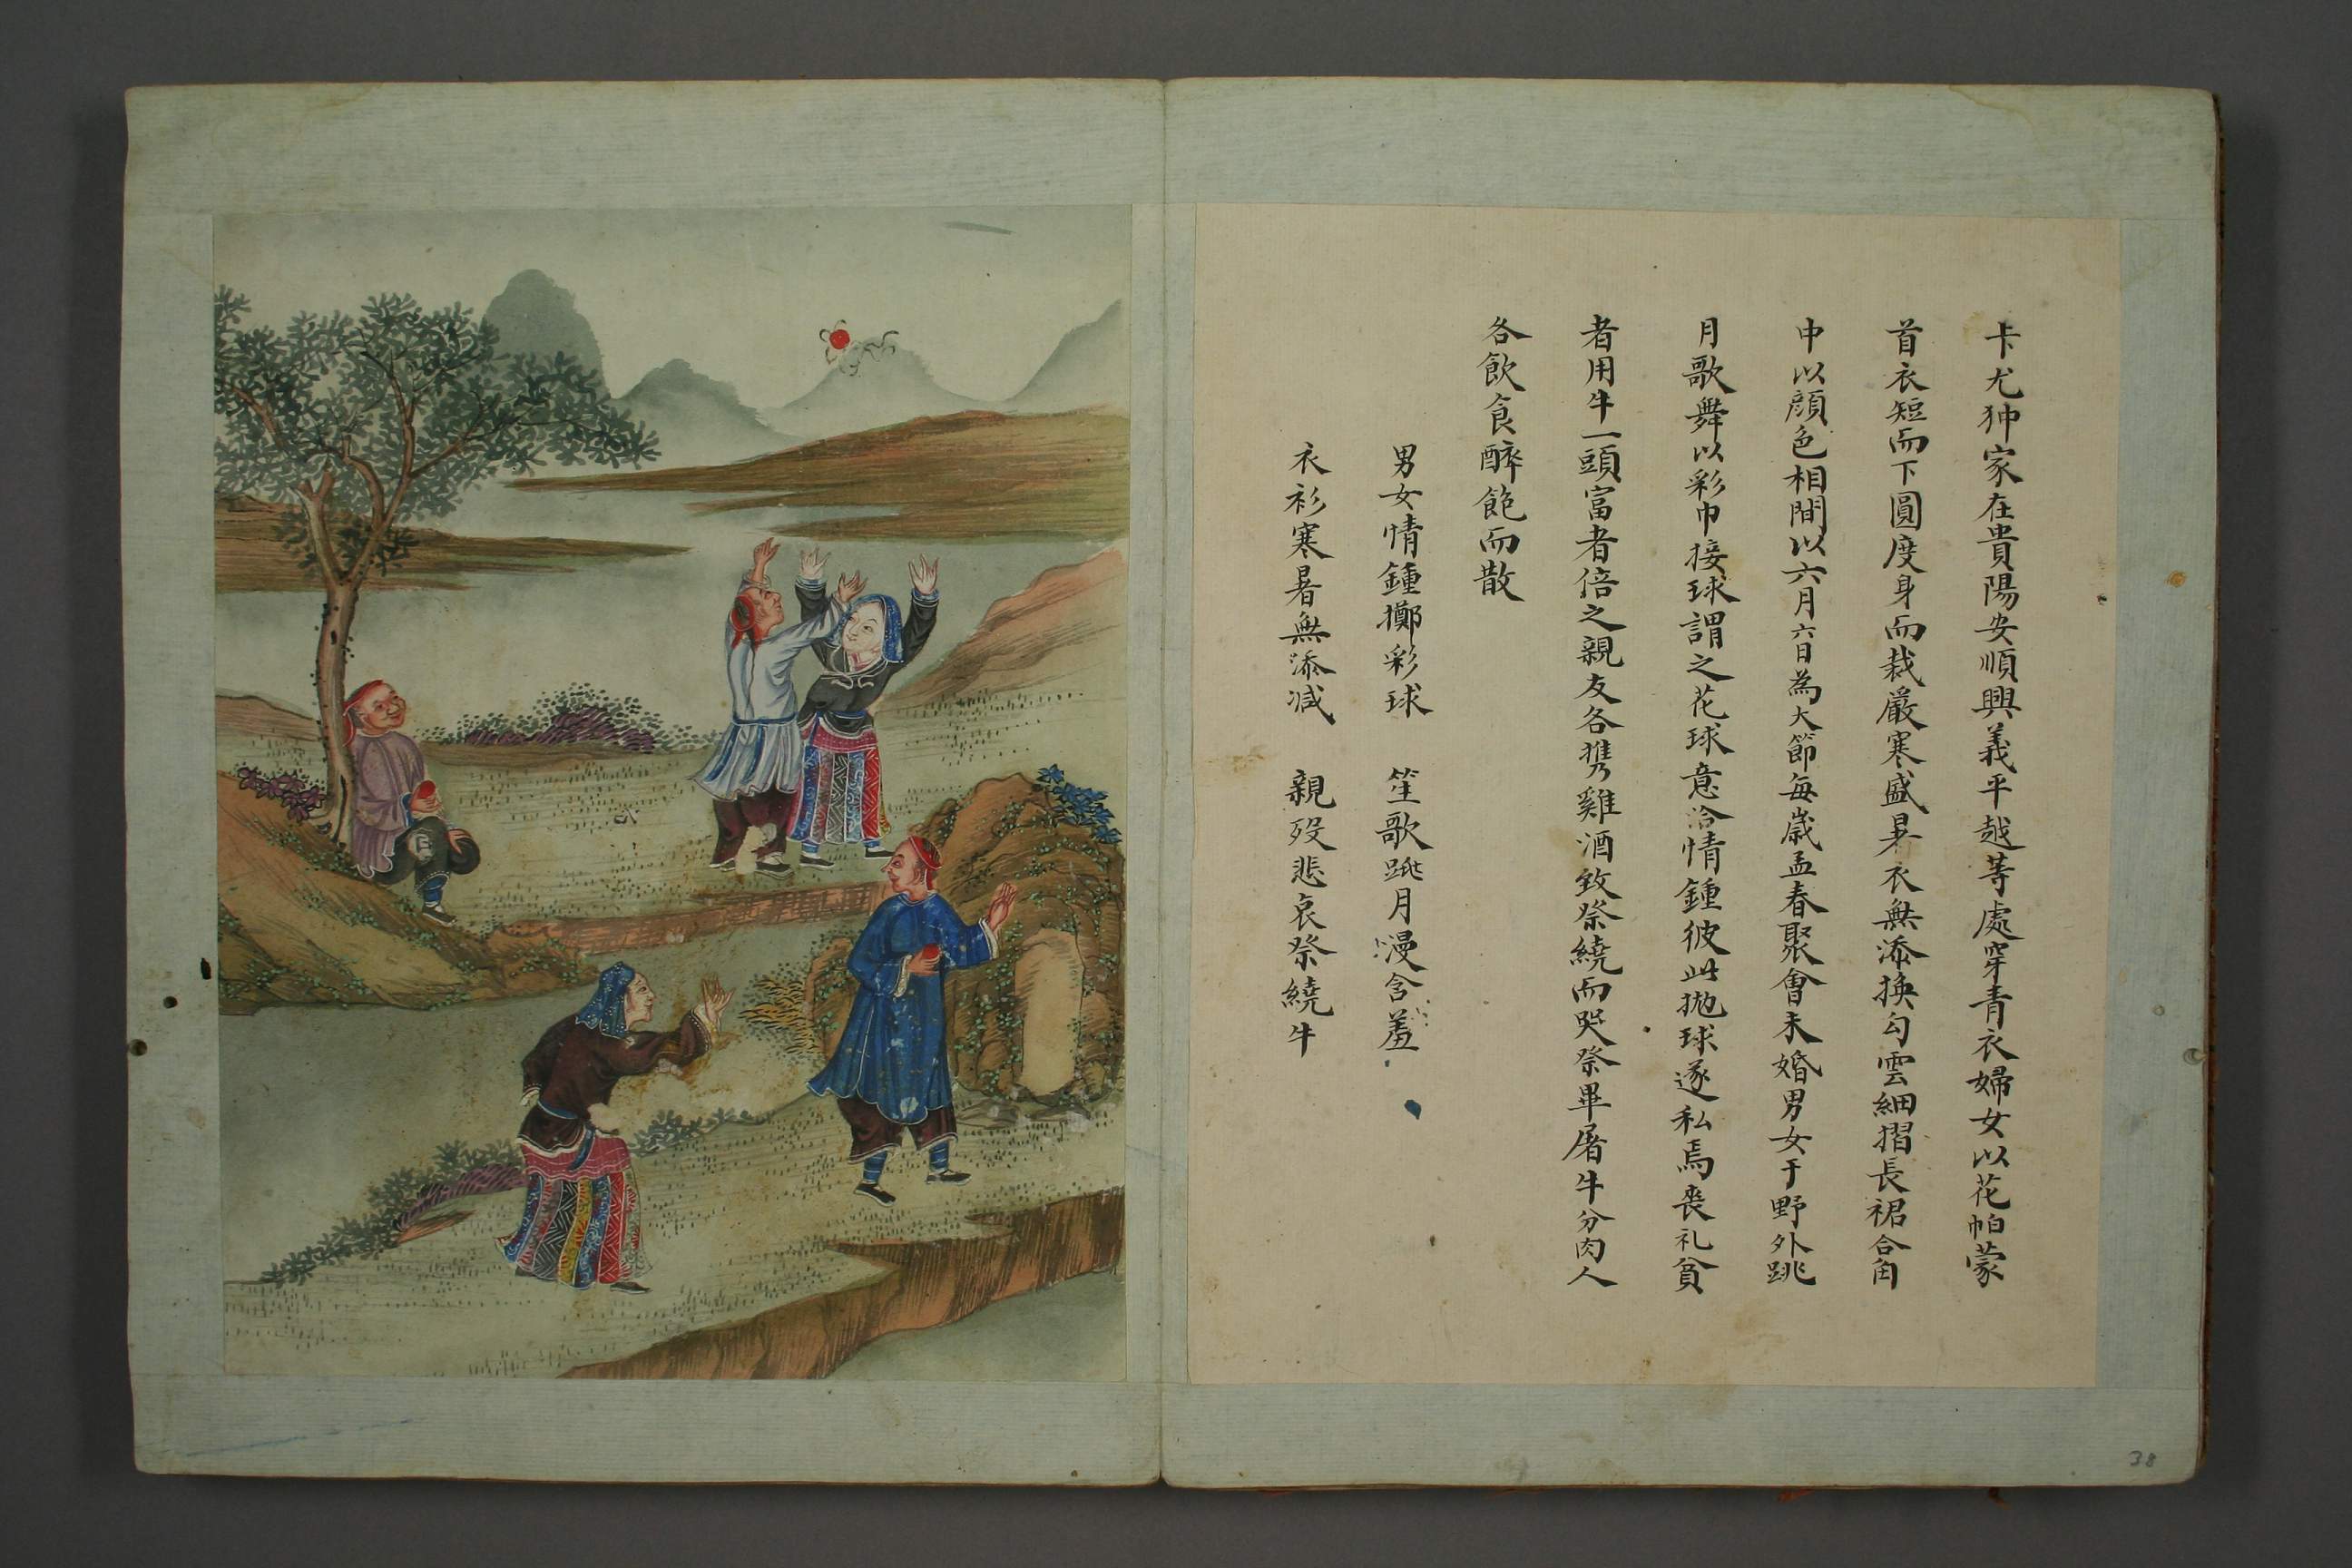 卡尤狆家在貴陽安順興義平越等處穿青衣婦女以花帕蒙
首衣短而下圓度身而裁嚴寒盛暑衣無添換勾雲細摺長裙合角
中以顔色相間以六月六日為大節每歲孟春聚會未婚男女于野外跳
月歌舞以彩巾接球謂之花球意洽情鍾彼此拋球遂私焉喪礼貧
者用牛一頭富者倍之親友各携雞酒致祭繞而哭祭畢屠牛分肉人
各飲食醉飽而散
男女情鍾擲彩球　笙歌跳月漫含羞
衣衫寒暑無添减　親歿悲哀祭繞牛
38